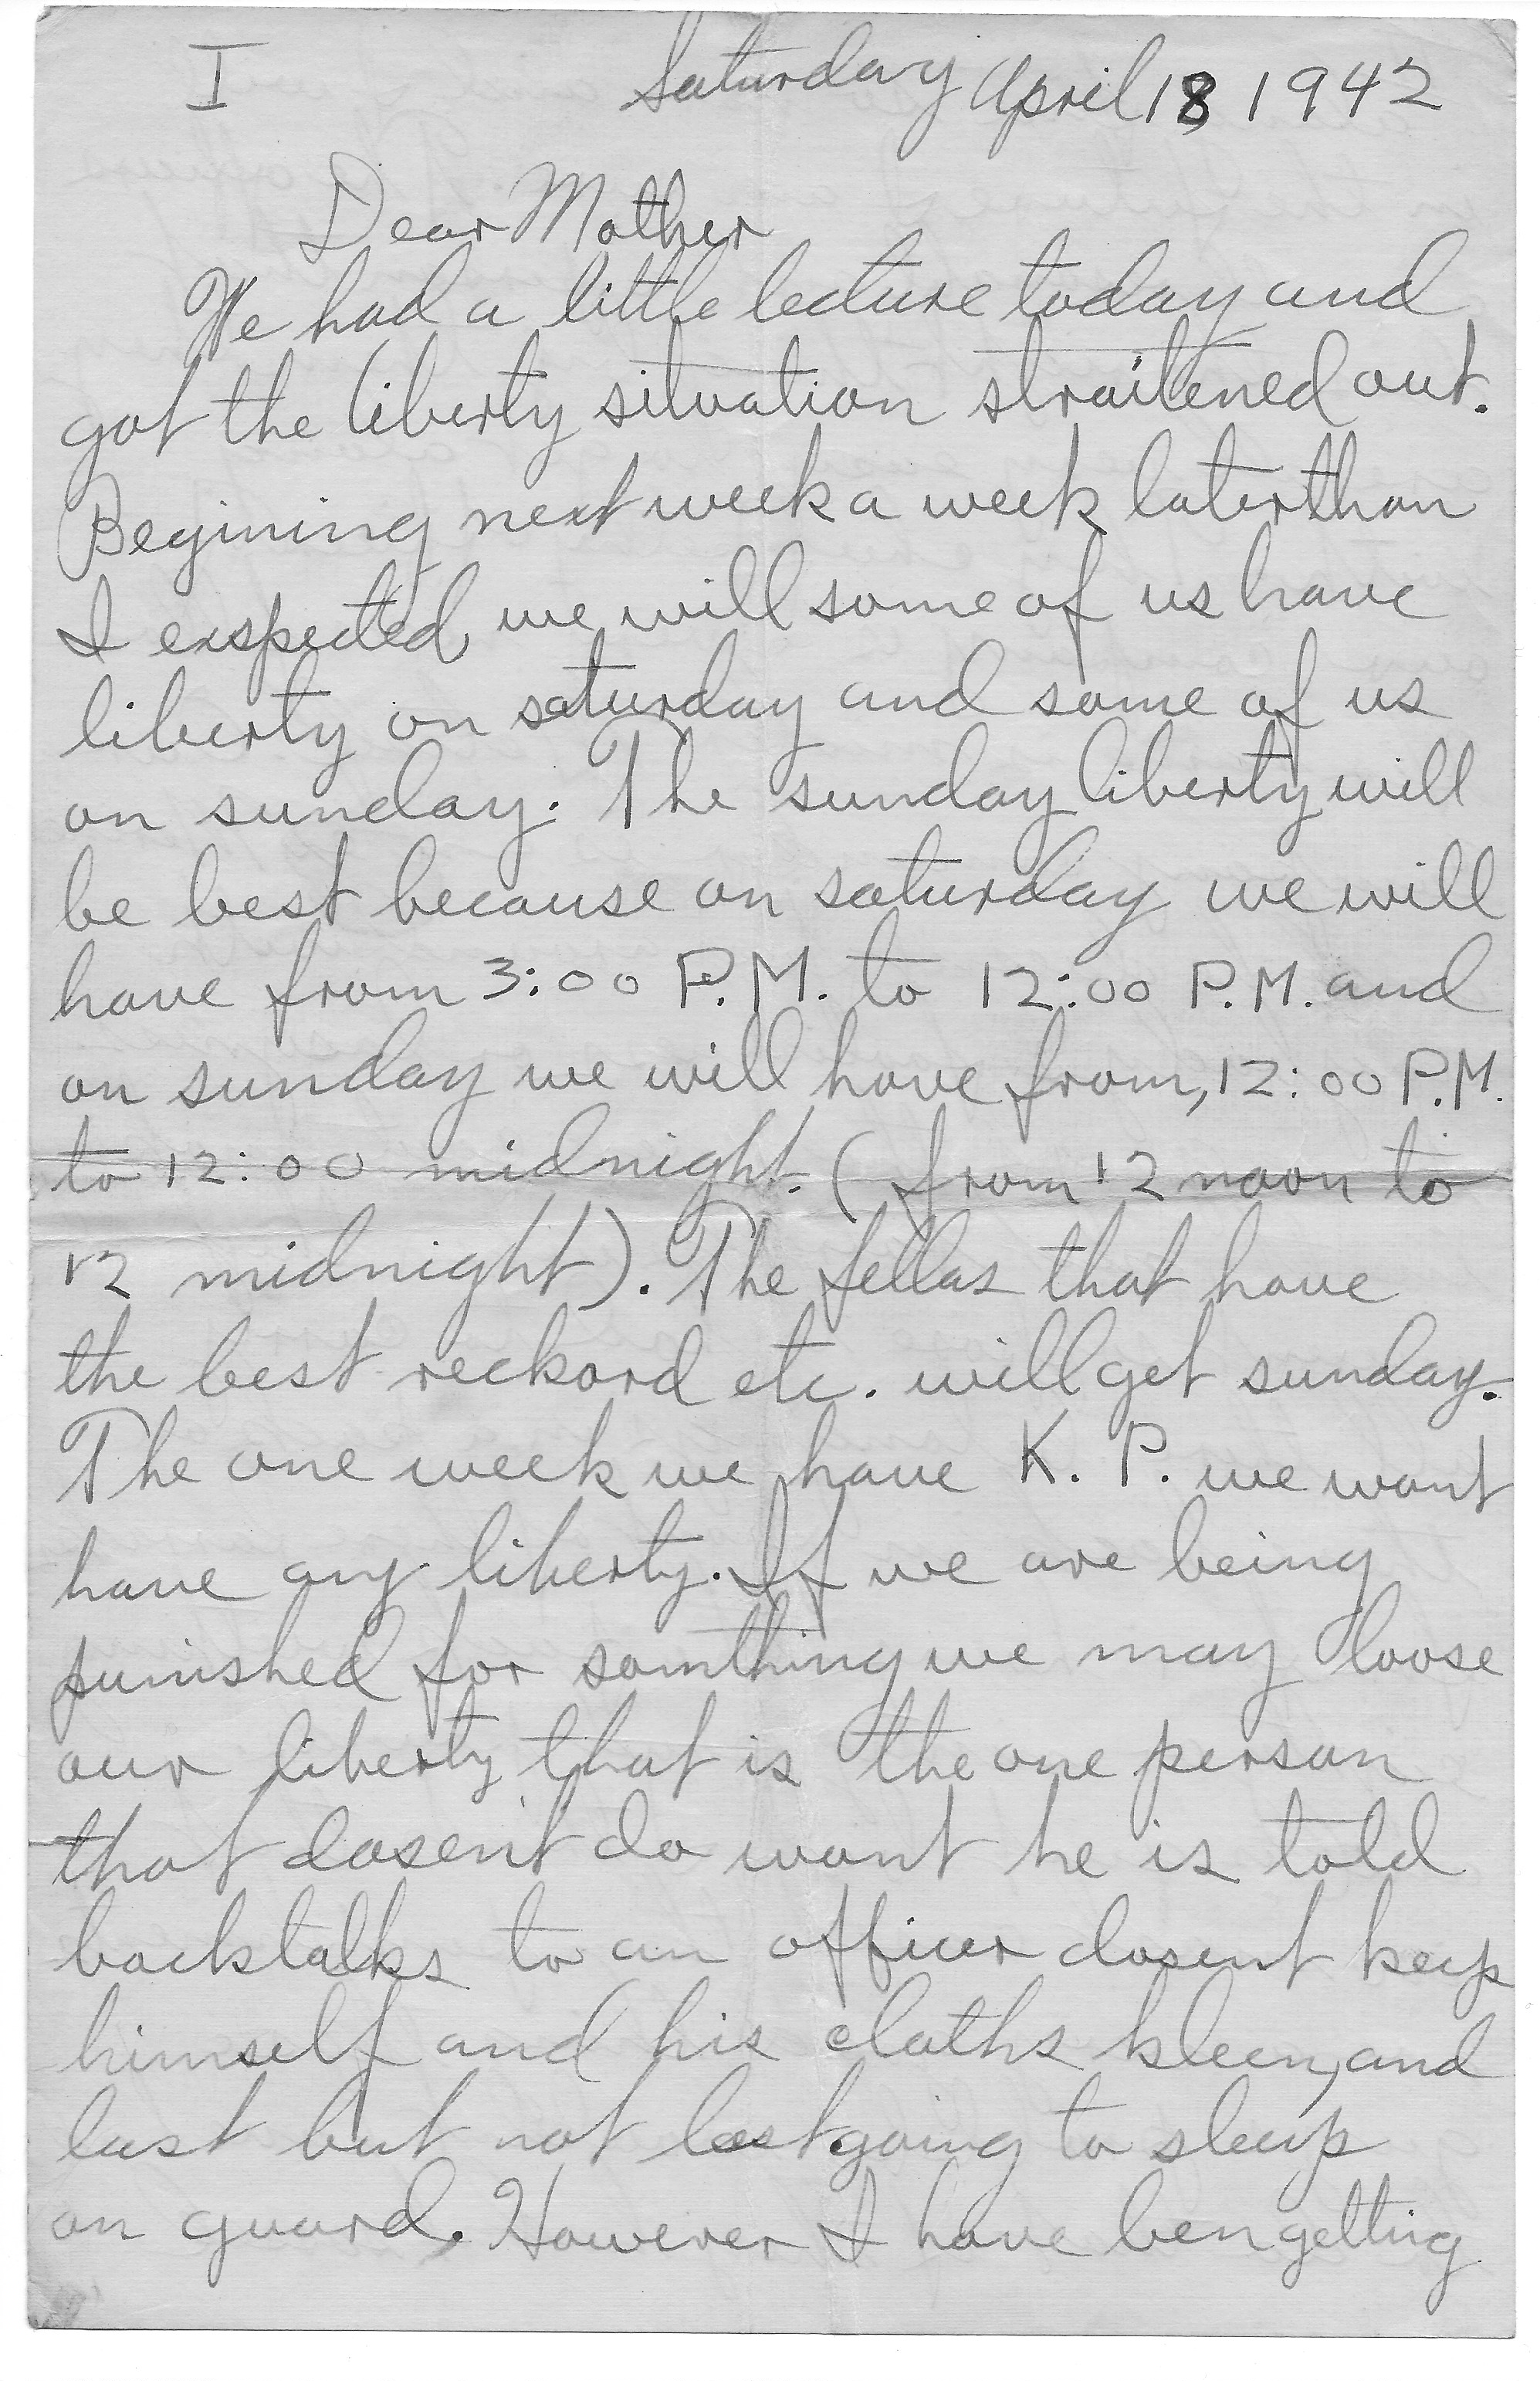 I Saturday April 18 1942
Dear Mother
We had a little lecture today and
got the liberty situation straitened out.
Begining next week a week later than
I exspected, we will some of us have
liberty on saturday and some of us
on sunday. The sunday liberty will
be best because on saturday we will
have from 3:00 P.M. to 12:00 P.M. and
on sunday we will have from, 12:00 P.M.
to 12:00 midnight. (from 12 noon to
12 midnight). The fellas that have
the best reckord etc. will get sunday.
The one week we have K. P. we wont
have any liberty. If we are being
punished for somthing we may loose
our liberty that is the one person
that dosen't do want he is told
backtalks to an officer dosent keep
himself and his cloths kleen, and
last but not least going to sleep
on guard. However I have ben getting